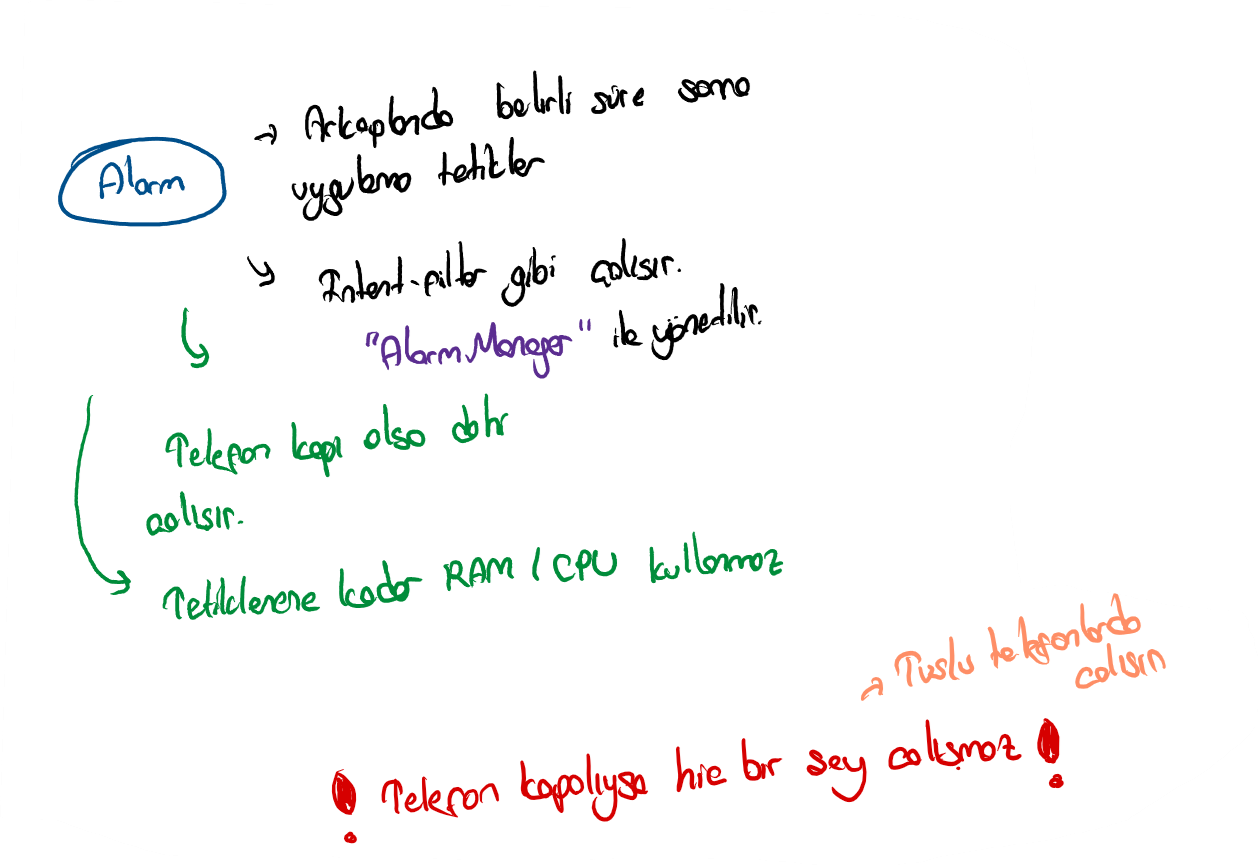 Alarm
→ Arkaplanda belirli süre sonra
uygulama tetikler
↘ Intent-filter gibi çalışır.
"Alarm Manager" ile yönedilir.
Telefon kapı olsa dahi
çalışır.
Tetiklenene kadar RAM / CPU kullanmaz
→ Tuşlu telefonlarda
çalışın
! Telefon kapalıysa hiç bir şey çalışmaz !